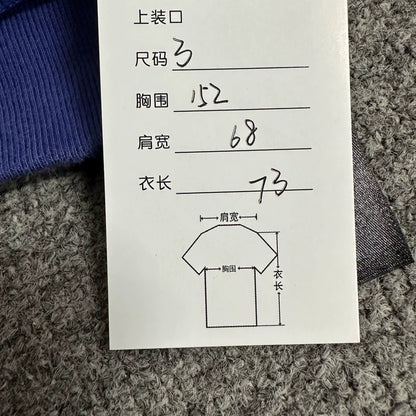 上装口
尺码 3
胸围 152
肩宽 68
衣长 73
肩宽
胸围
衣长